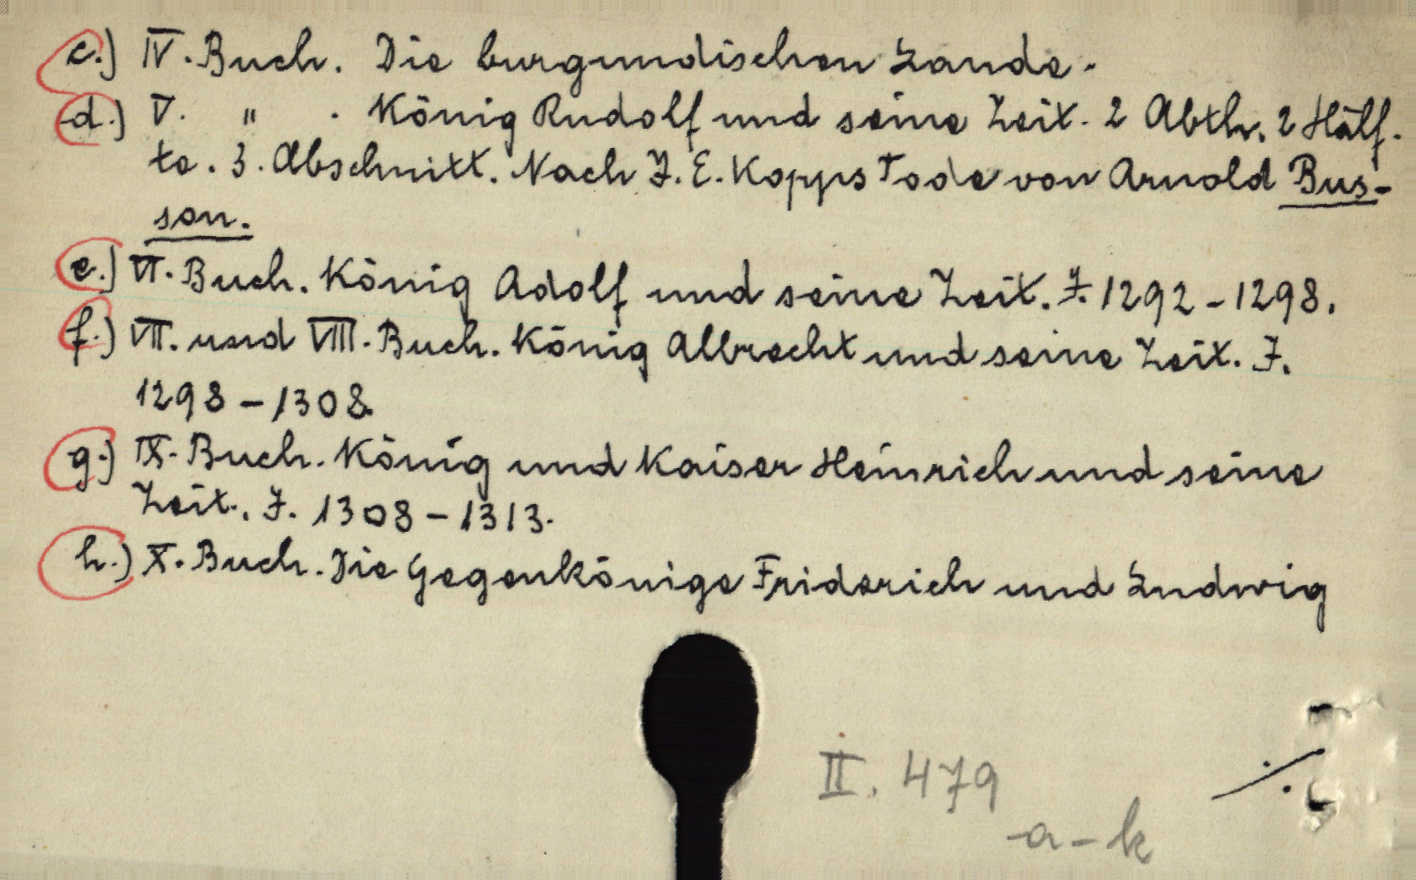 c.) IV. Buch. Die burgundischen Lande.
d.) V. " . König Rudolf und seine Zeit. 2 Abth. 2 Hälf-
te. 3. Abschnitt. Nach J. E. Kopps Tode von Arnold Bus-
son.
e.) VI. Buch. König Adolf und seine Zeit. J. 1292-1298.
f.) VII. und VIII. Buch. König Albrecht und seine Zeit. J.
1298-1308.
g.) IX. Buch. König und Kaiser Heinrich und seine
Zeit. J. 1308-1313.
h.) X. Buch. Die Gegenkönige Friderich und Ludwig
II. 479
a-k
./.